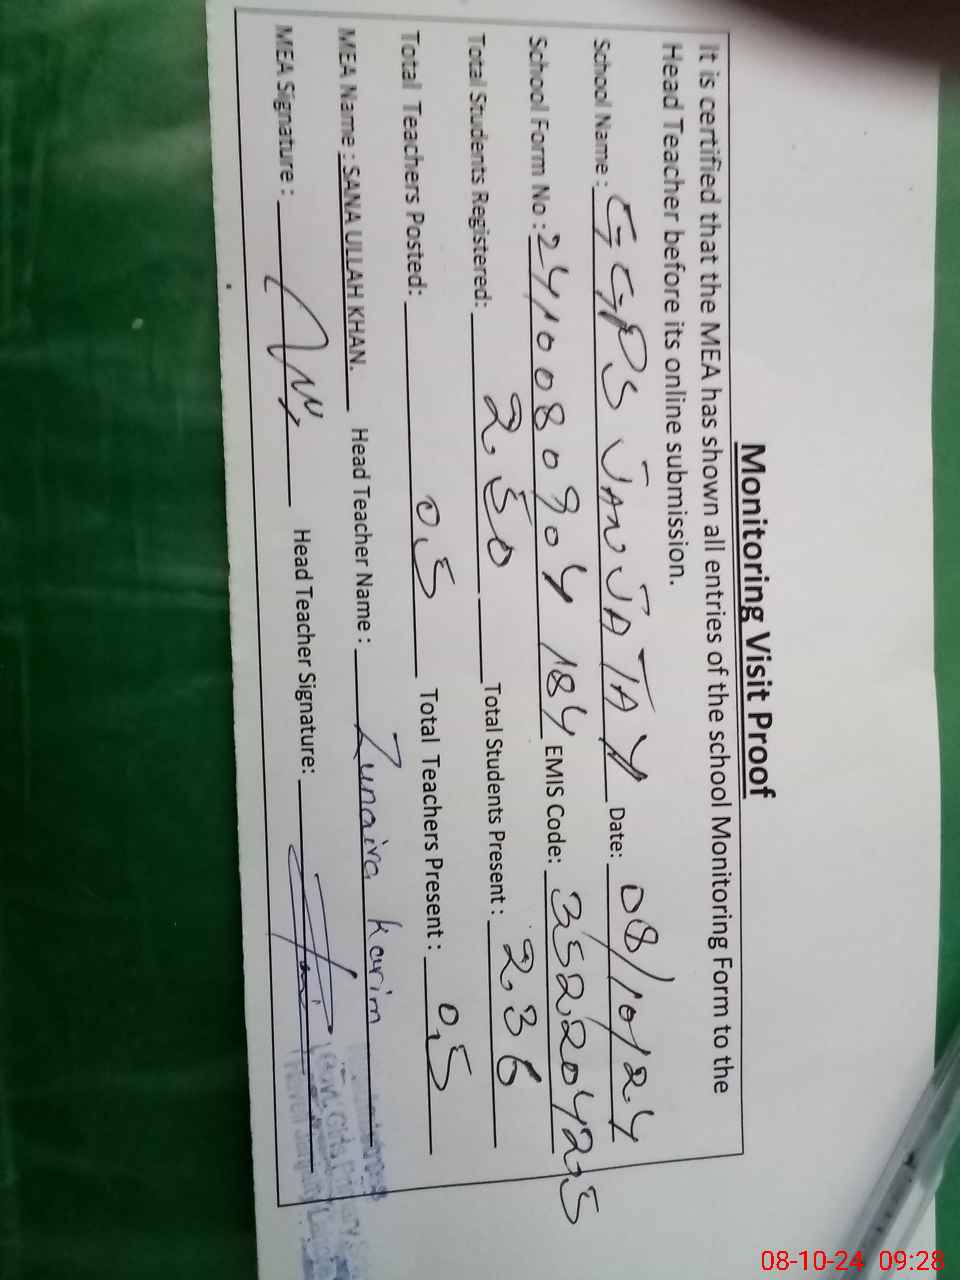 Monitoring Visit Proof
It is certified that the MEA has shown all entries of the school Monitoring Form to the
Head Teacher before its online submission.
School Name : GGPS JANJATAY Date: 08/10/24
School Form No : 2410080904184 EMIS Code: 35220425
Total Students Registered: 250 Total Students Present : 236
Total Teachers Posted: 05 Total Teachers Present : 05
MEA Name : SANA ULLAH KHAN. Head Teacher Name : Zunaira Karim
MEA Signature : Head Teacher Signature:
Govt. Girls
08-10-24 09:28